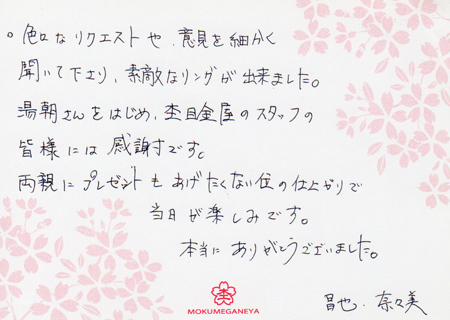 。色々なリクエストや、意見を細かく
聞いて下さり、素敵なリングが出来ました。
湯朝さんをはじめ、杢目金屋のスタッフの
皆様には感謝です。
両親にプレゼントもあげたくない位の仕上がりで
当日が楽しみです。
本当にありがとうございました。
昌也・奈々美
杢
MOKUMEGANEYA